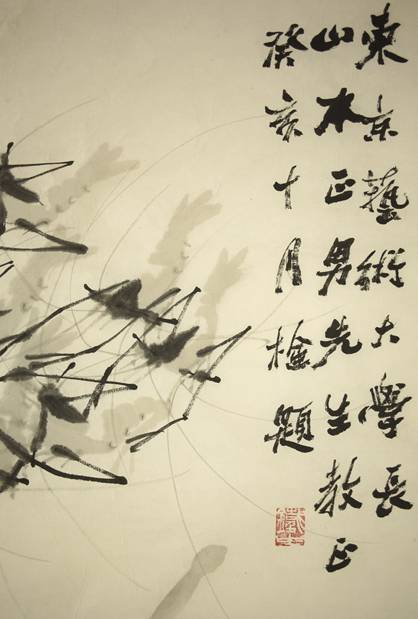 東京藝術大學長
山本正男先生教正
癸亥十月檢題